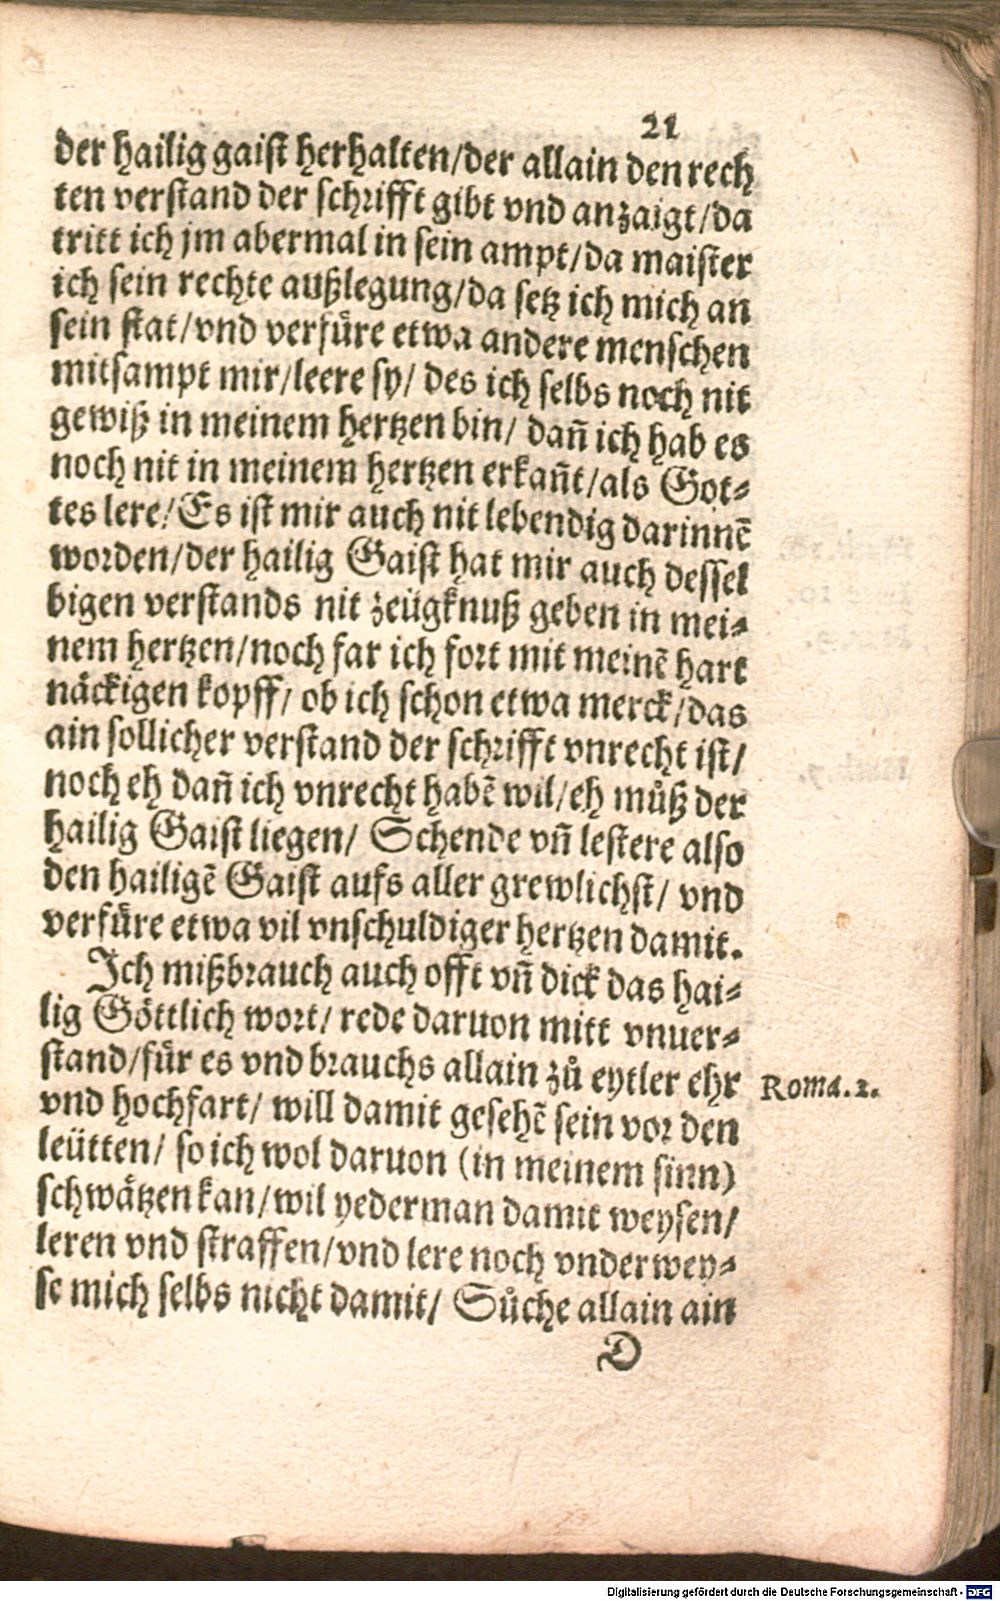 21
der hailig gaist herhalten/der allain den rech
ten verstand der schrifft gibt vnd anzaigt/da
tritt ich jm abermal in sein ampt/da maister
ich sein rechte außlegung/da setz ich mich an
sein stat/vnd verfüre etwa andere menschen
mitsampt mir/leere sy/ des ich selbs noch nit
gewiß in meinem hertzen bin/ dañ ich hab es
noch nit in meinem hertzen erkañt/als Got-
tes lere/Es ist mir auch nit lebendig darinnē
worden/der hailig Gaist hat mir auch dessel
bigen verstands nit zeügknuß geben in mei-
nem hertzen/noch far ich fort mit meinē hart
näckigen kopff/ ob ich schon etwa merck/das
ain sollicher verstand der schrifft vnrecht ist/
noch eh dañ ich vnrecht habē wil/eh můß der
hailig Gaist liegen/ Schende vñ lestere also
den hailigē Gaist aufs aller grewlichst/ vnd
verfüre etwa vil vnschuldiger hertzen damit.
Ich mißbrauch auch offt vñ dick das hai-
lig Göttlich wort/ rede daruon mitt vnuer-
stand/für es vnd brauchs allain zů eytler ehr
Roma.2.
vnd hochfart/ will damit gesehē sein vor den
leütten/ so ich wol daruon (in meinem sinn)
schwätzen kan/wil yederman damit weysen/
leren vnd straffen/vnd lere noch vnderwey-
se mich selbs nicht damit/ Sůche allain ain
D
Digitalisierung gefördert durch die Deutsche Forschungsgemeinschaft - DFG